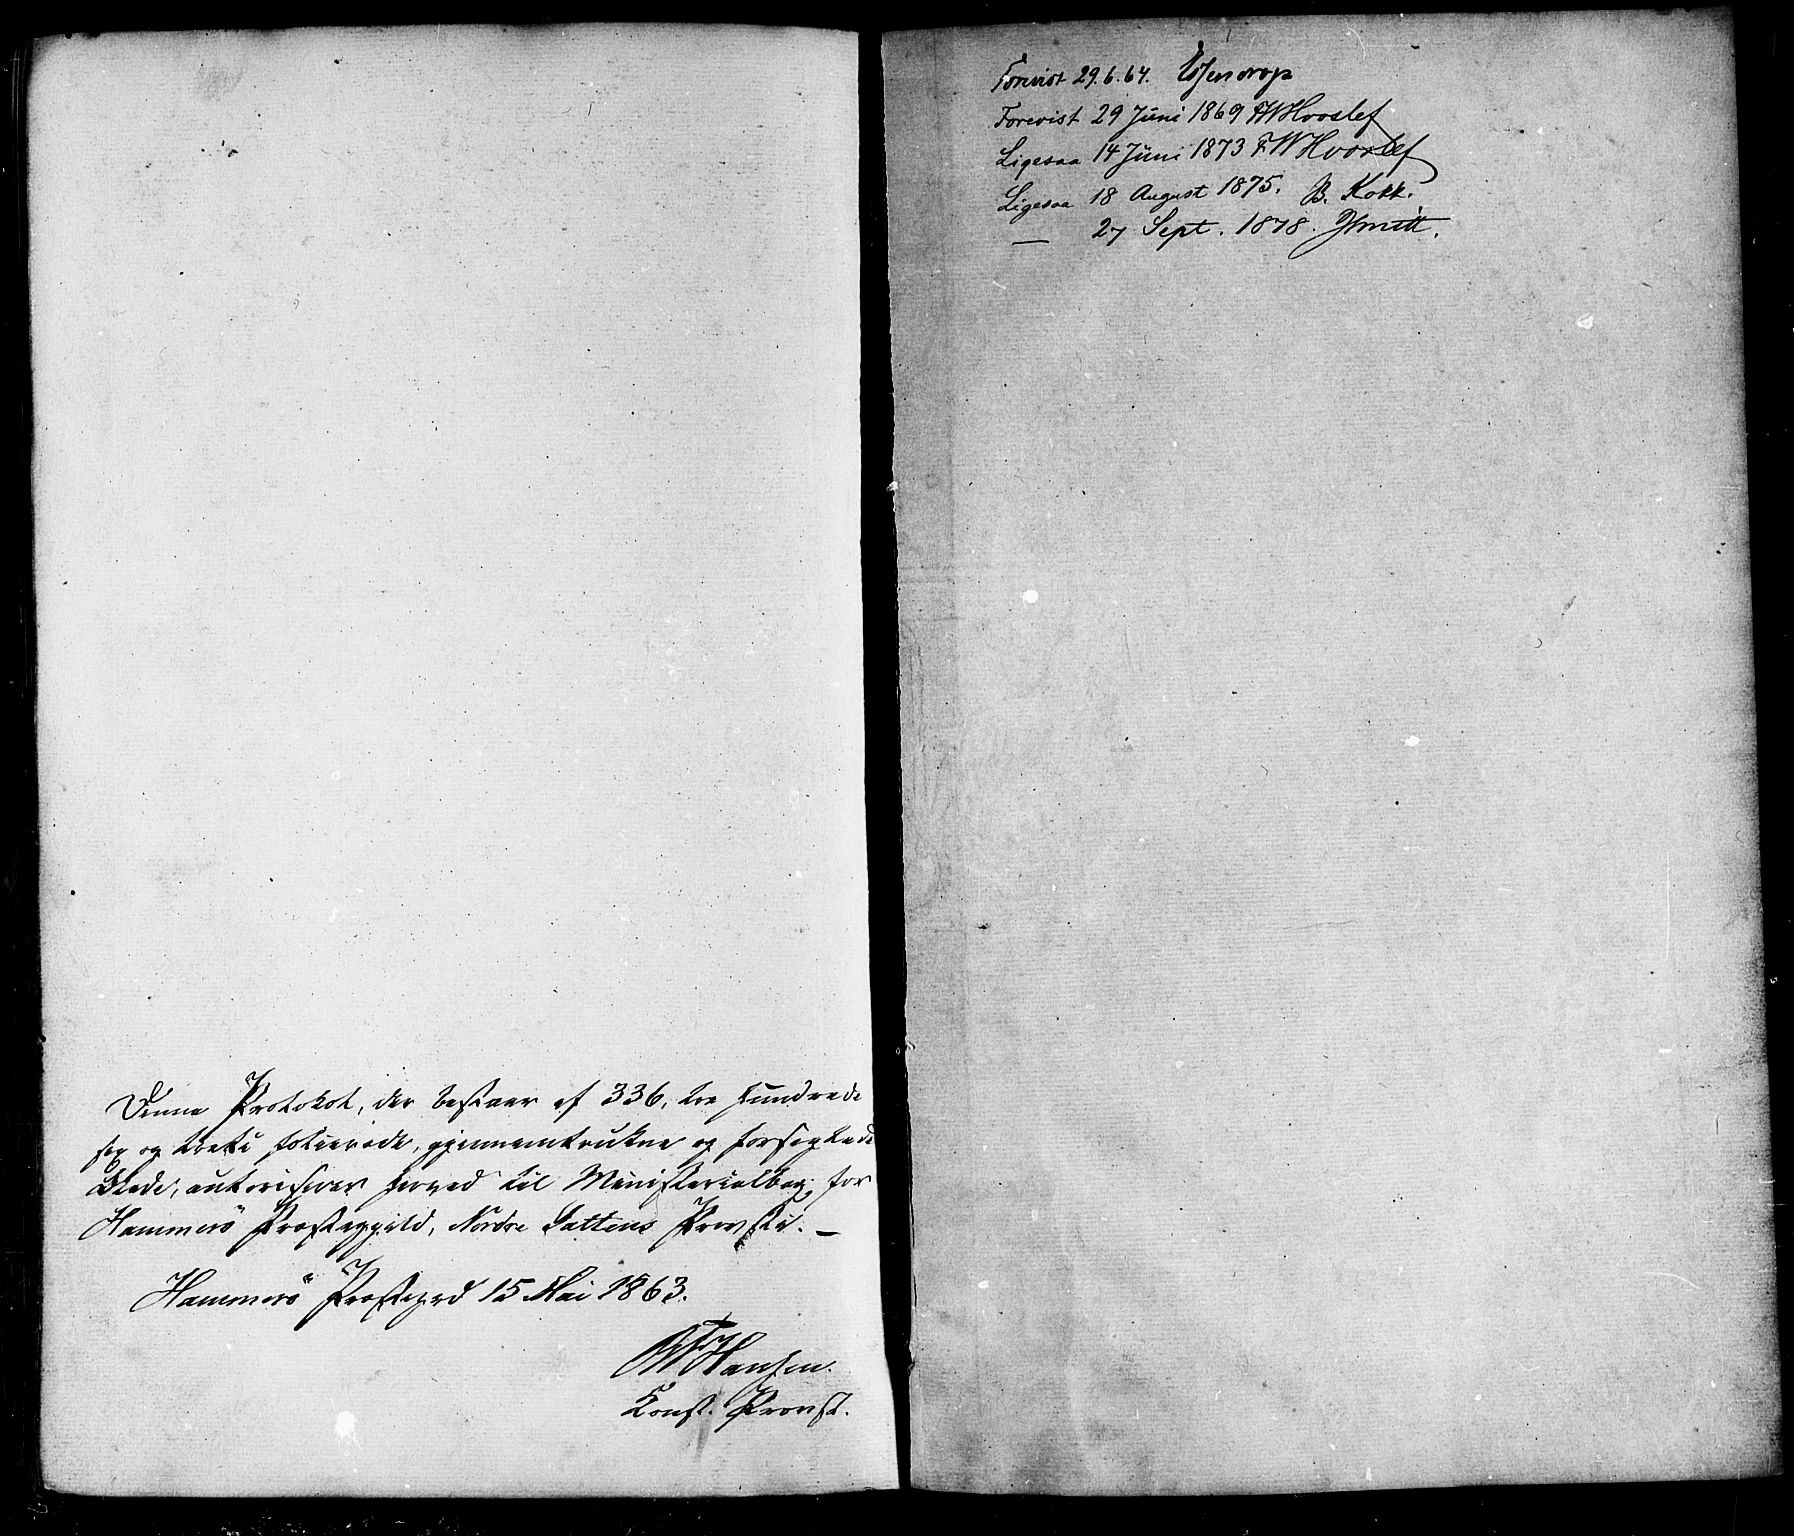 Denne Protokol, der bestaaer af 336, tre hundrede
sex og tredi folierede, gjennemtrukne og forseglede
Blade, autoriseres herved til Ministerialbog for
Hammerø Præstegjeld, Nordre Saltens Provsti. —
Hammerø Præstegrd 15 Mai 1863.
Hansen.
Const. Provst.
Forevist 29.6.64. Essendrop
Forevist 29 Juni 1869 FWHvoslef
Ligesaa 14 Juni 1873 FWHvoslef
Ligesaa 18 August 1875. B. Kokk.
— 27 Sept. 1878. JSmitt.